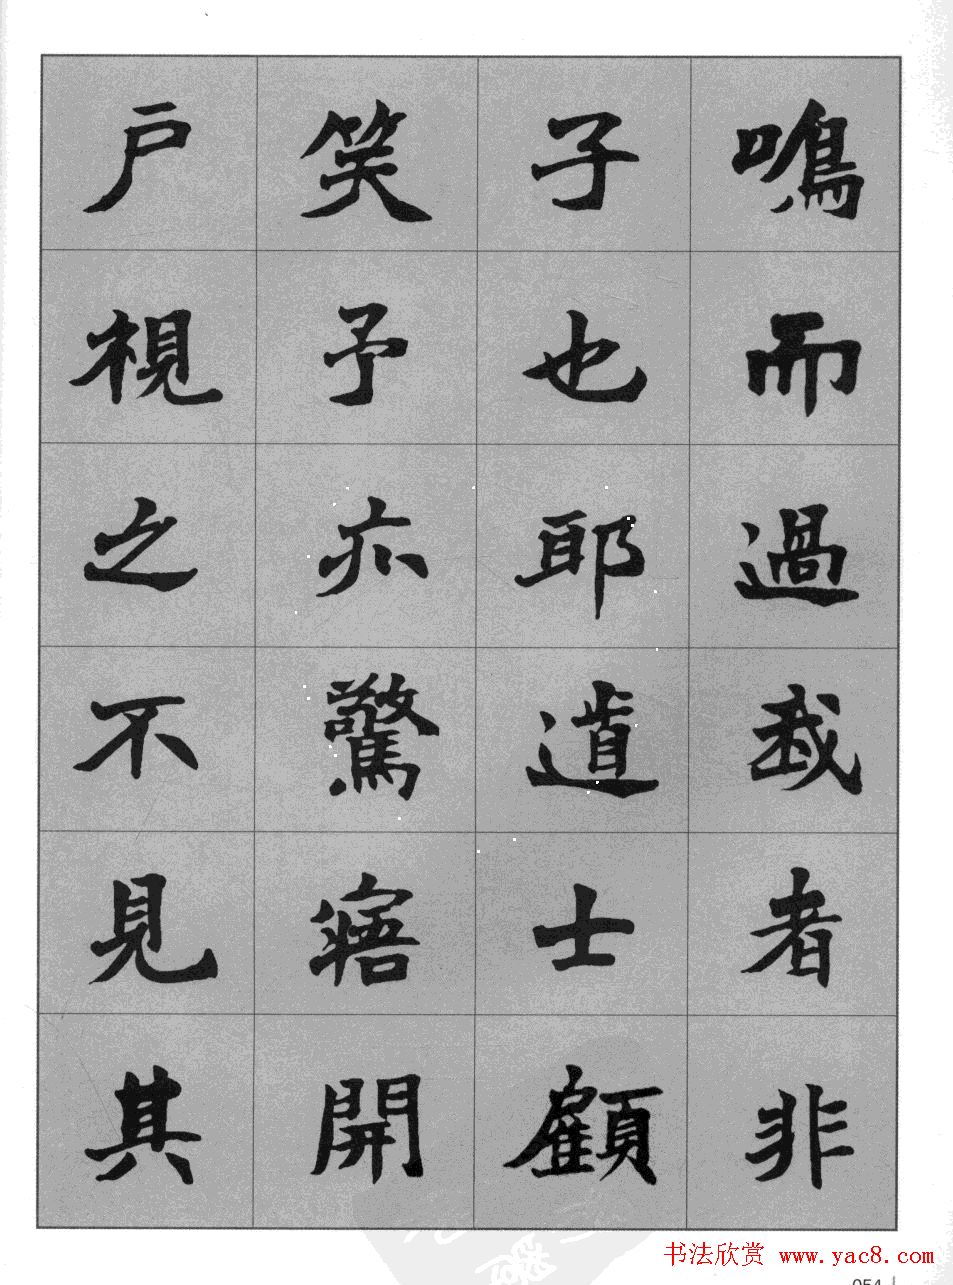 鳴而過我者非
子也耶道士顧
笑予亦驚寤開
戶視之不見其
书法欣赏 www.yac8.com
054